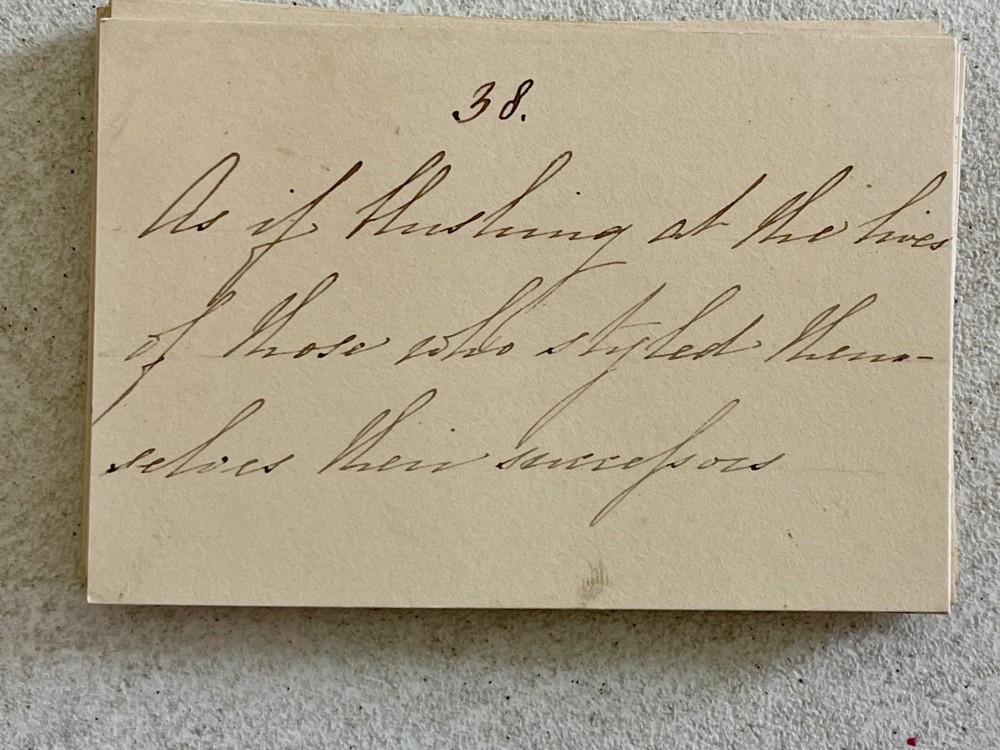 38.
As if blushing at the lives
of those who styled them-
selves their successors